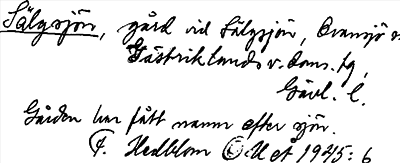 Sälgsjön, gård vid Sälgsjön, Ovansjö s
Gästriklands v. doms. tg,
Gävl. l.
Gården har fått namn efter sjön.
F. Hedblom © Ua 1945: 6